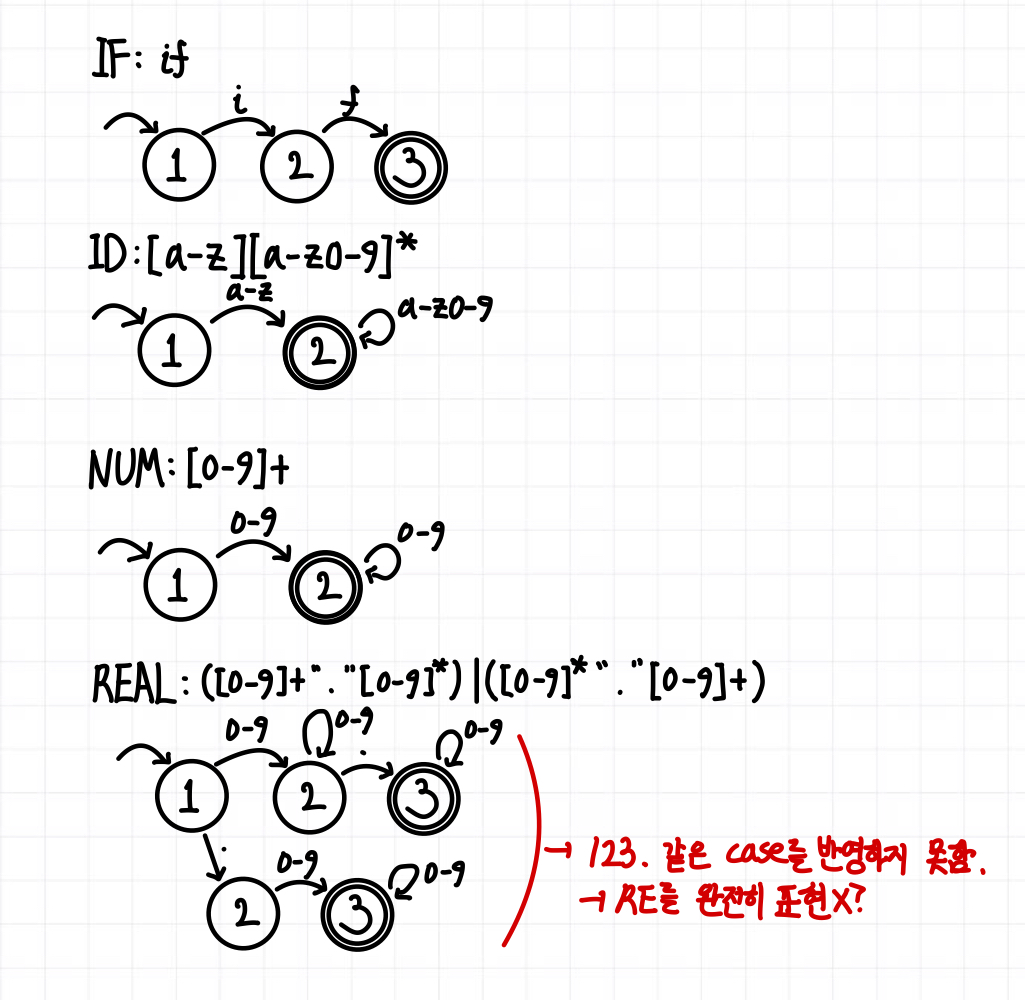 IF: if
i f
1 2 3
ID: [a-z][a-z0-9]*
a-z a-z0-9
1 2
NUM: [0-9]+
0-9 0-9
1 2
REAL: ([0-9]+"."[0-9]*)|([0-9]*"."[0-9]+)
0-9 0-9 . 0-9
1 2 3
. 0-9 0-9
2 3
→ 123. 같은 case를 반영하지 못함.
→ RE를 완전히 표현X?